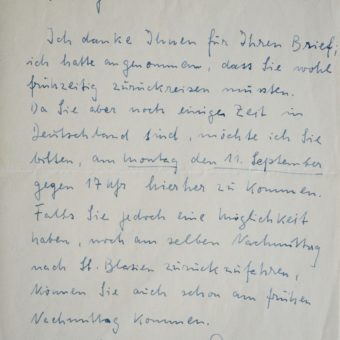 Ich danke Ihnen für Ihren Brief,
ich hatte angenommen, dass Sie wohl
frühzeitig zurückreisen müssten.
Da Sie aber noch einige Zeit in
Deutschland sind, möchte ich Sie
bitten, am Montag den 11. September
gegen 17 Uhr hierher zu kommen.
Falls Sie jedoch eine Möglichkeit
haben, noch am selben Nachmittag
nach St. Blasien zurückzufahren,
können Sie auch schon am frühen
Nachmittag kommen.